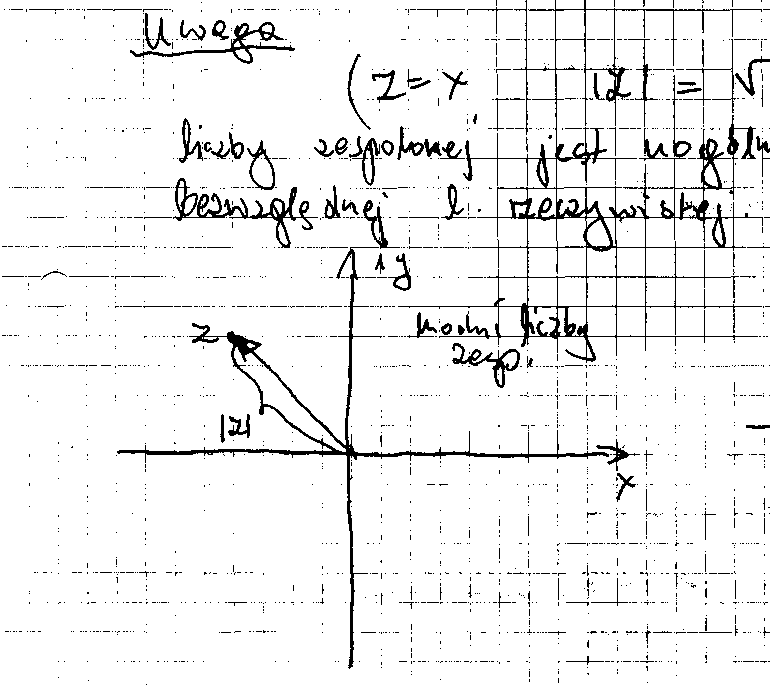 Uwaga
(z = x |z| = √
liczby zespolonej jest uogóln
bezwzględnej l. rzeczywistej.
iy
z
moduł liczby
zesp.
|z|
x